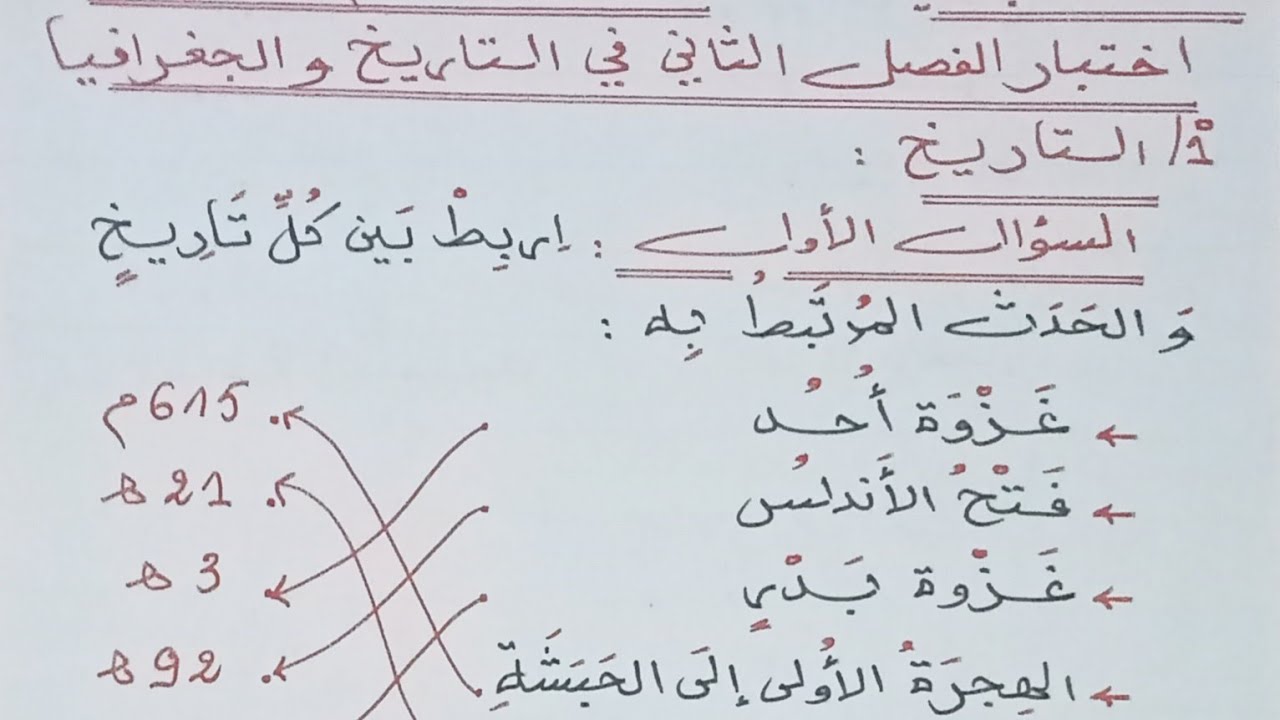 اختبار الفصل الثاني في التاريخ والجغرافيا
1/ التاريخ :
السؤال الأول : اِربِطْ بَين كُلِّ تَارِيخٍ
وَ الحَدَث المُرتَبطُ بِه :
← غَزْوَة أُحُد 615م
← فَتْحُ الأَندلسُ 21 ه
← غَزْوة بَدْرٍ 3 ه
← الهِجرَةُ الأُولى إلَى الحَبَشَةِ 92 ه